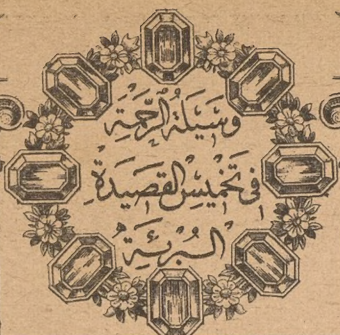 وَسِيْلَةُ الرَّحْمَةِ
فِي تَخْمِيْسِ الْقَصِيْدَةِ
الْبُرْئَةِ